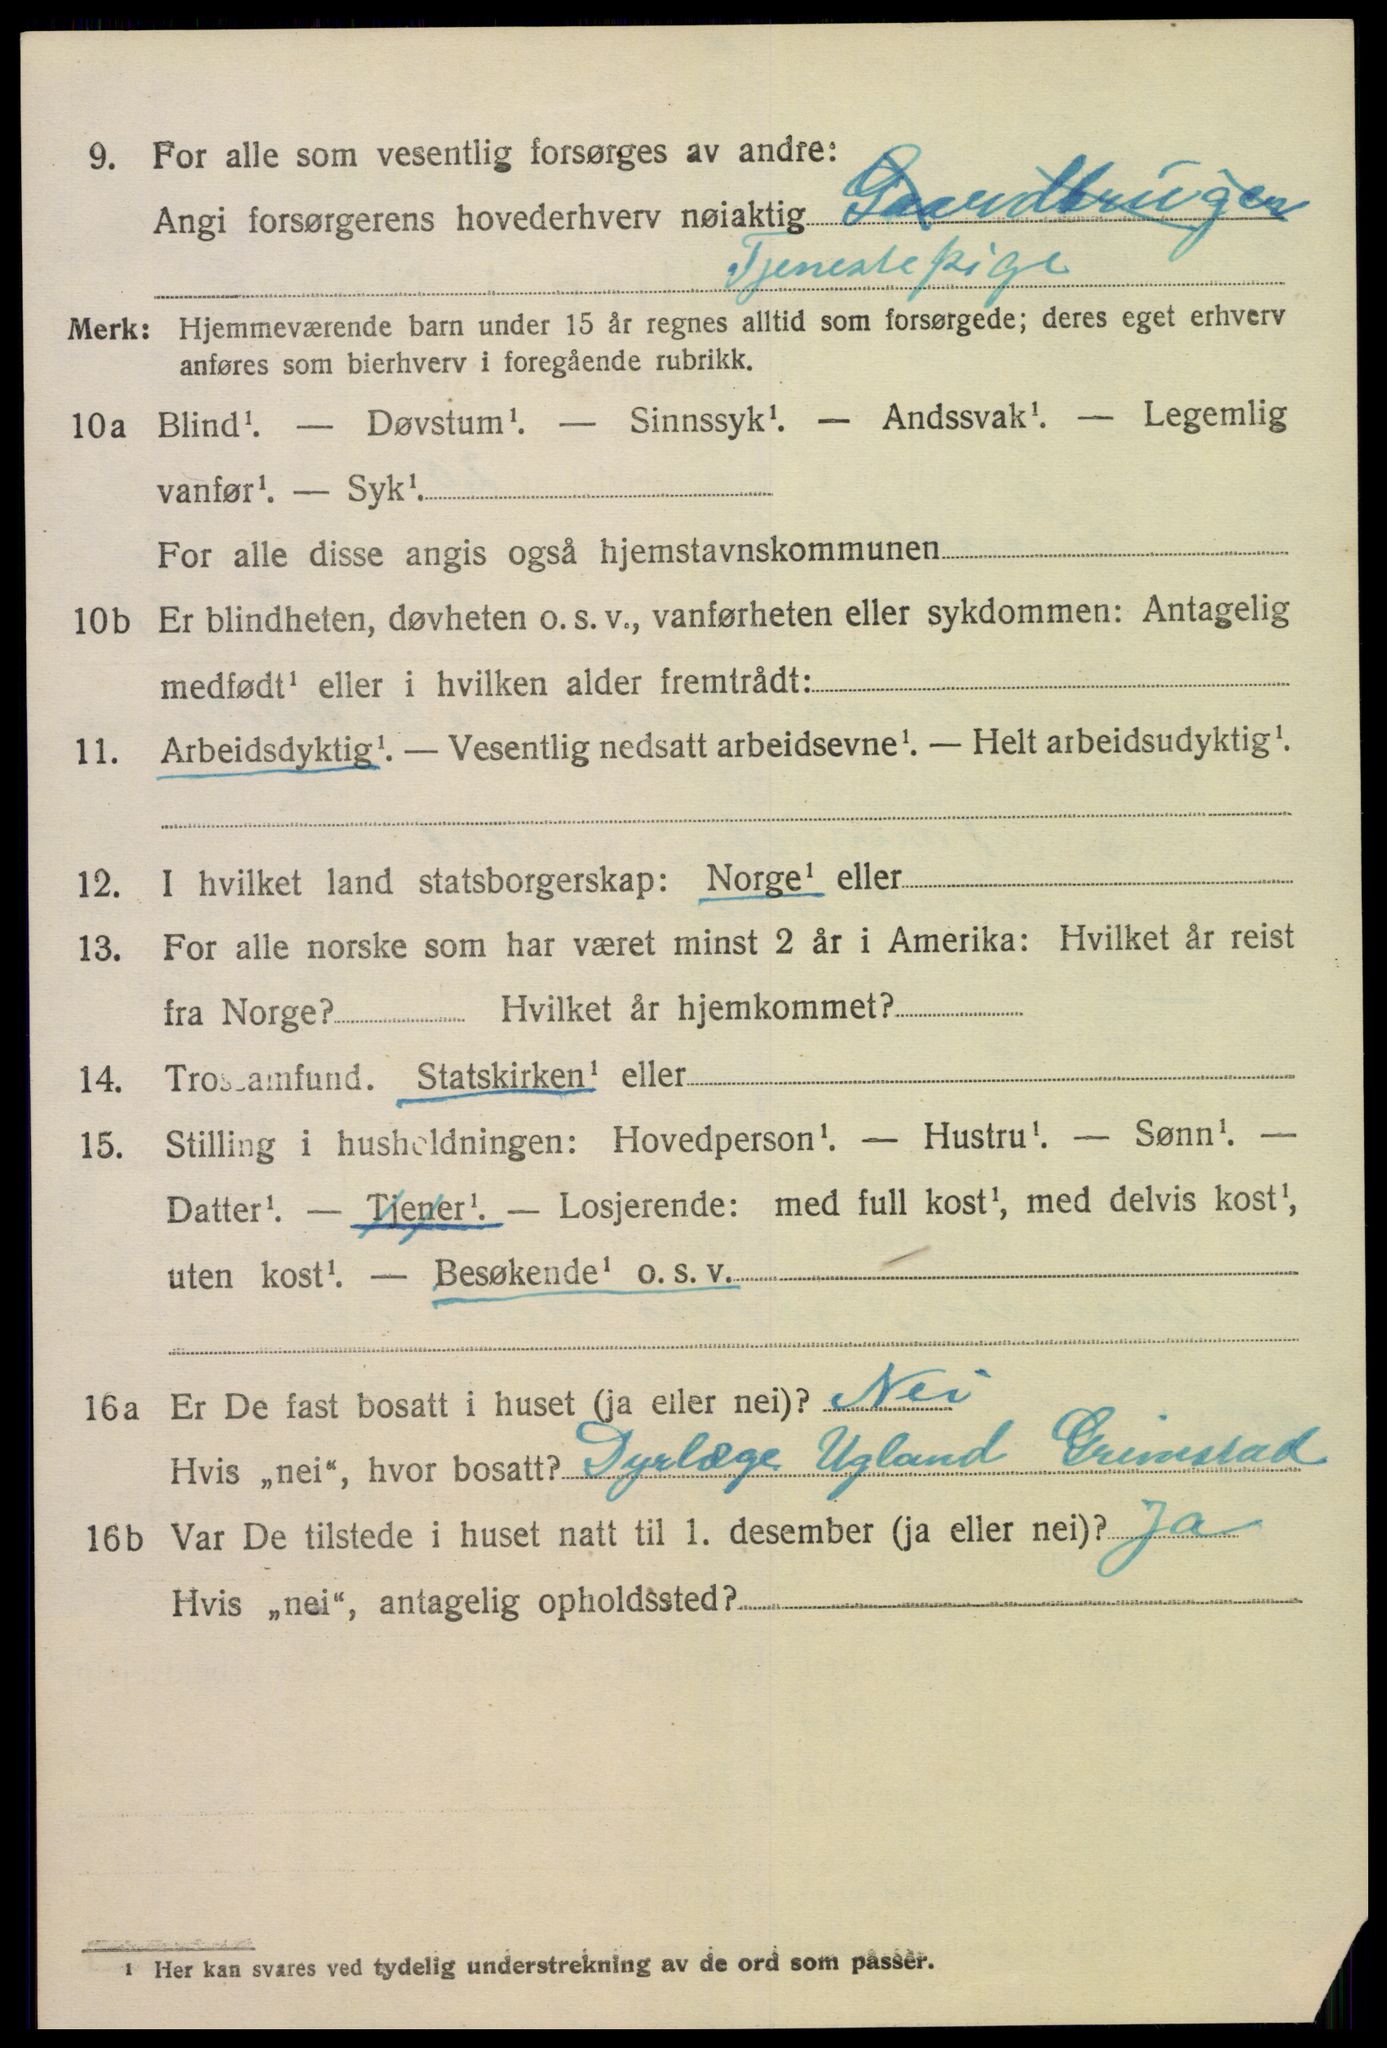 9. For alle som vesentlig forsørges av andre:
Angi forsørgerens hovederhverv nøiaktig Gaardbruger
Tjenestepige
Merk: Hjemmeværende barn under 15 år regnes alltid som forsørgede; deres eget erhverv
anføres som bierhverv i foregående rubrikk.
10a Blind¹. — Døvstum¹. — Sinnssyk¹. — Andssvak¹. — Legemlig
vanfør¹. — Syk¹.
For alle disse angis også hjemstavnskommunen
10b Er blindheten, døvheten o. s. v., vanførheten eller sykdommen: Antagelig
medfødt¹ eller i hvilken alder fremtrådt:
11. Arbeidsdyktig¹. — Vesentlig nedsatt arbeidsevne¹. — Helt arbeidsudyktig¹.
12. I hvilket land statsborgerskap: Norge¹ eller
13. For alle norske som har været minst 2 år i Amerika: Hvilket år reist
fra Norge? Hvilket år hjemkommet?
14. Trossamfund. Statskirken¹ eller
15. Stilling i husholdningen: Hovedperson¹. — Hustru¹. — Sønn¹. —
Datter¹. — Tjener¹. — Losjerende: med full kost¹, med delvis kost¹,
uten kost¹. — Besøkende¹ o. s. v.
16a Er De fast bosatt i huset (ja eller nei)? Nei
Hvis „nei“, hvor bosatt? Dyrlæge Ugland Grimstad
16b Var De tilstede i huset natt til 1. desember (ja eller nei)? Ja
Hvis „nei“, antagelig opholdssted?
1 Her kan svares ved tydelig understrekning av de ord som passer.